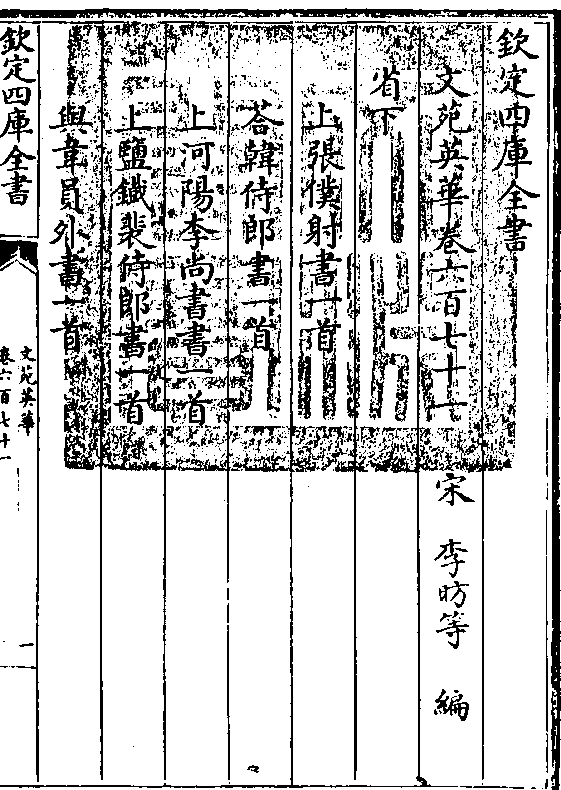 欽定四庫全書
文苑英華卷六百七十一
宋 李昉等 編
省下
上張僕射書一首
荅韓侍郎書一首
上河陽李尚書書一首
上鹽鐵裴侍郎書一首
與韋員外書一首
欽定四庫全書
文苑英華
卷六百七十一
一